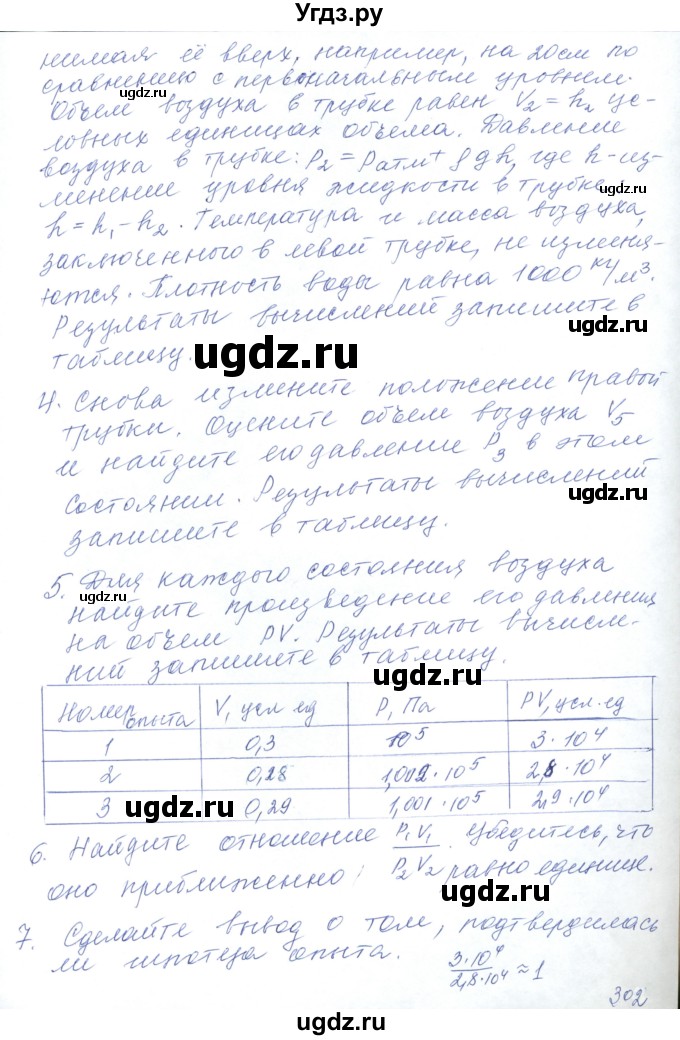 Угдз.ру
нимая её вверх, например, на 20см по
сравнению с первоначальным уровнем.
Объем воздуха в трубке равен V₂ = h₂ ус-
ловных единицах объема. Давление
воздуха в трубке: P₂ = Pатм + ρgh, где h-из-
менение уровня жидкости в трубке
h = h₁ - h₂. Температура и масса воздуха,
заключенного в левой трубке, не изменя-
ются. Плотность воды равна 1000 кг/м³.
Результаты вычислений запишите в
таблицу.
4. Снова измените положение правой
трубки. Оцените объем воздуха V₅
и найдите его давление P₃ в этом
состоянии. Результаты вычислений
запишите в таблицу.
5. Для каждого состояния воздуха
найдите произведение его давления
на объем PV. Результаты вычисле-
ний запишите в таблицу.
Номер опыта V, усл ед P, Па PV, усл. ед
1 0,3 10⁵ 3·10⁴
2 0,28 1,002·10⁵ 2,8·10⁴
3 0,29 1,001·10⁵ 2,9·10⁴
6. Найдите отношение P₁V₁/P₂V₂. Убедитесь, что
оно приближенно равно единице.
7. Сделайте вывод о том, подтвердилась
ли гипотеза опыта. 3·10⁴/2,8·10⁴ ≈ 1
302
ugdz.ru
ugdz.ru
ugdz.ru
ugdz.ru
ugdz.ru
ugdz.ru
ugdz.ru
ugdz.ru
ugdz.ru
ugdz.ru
ugdz.ru